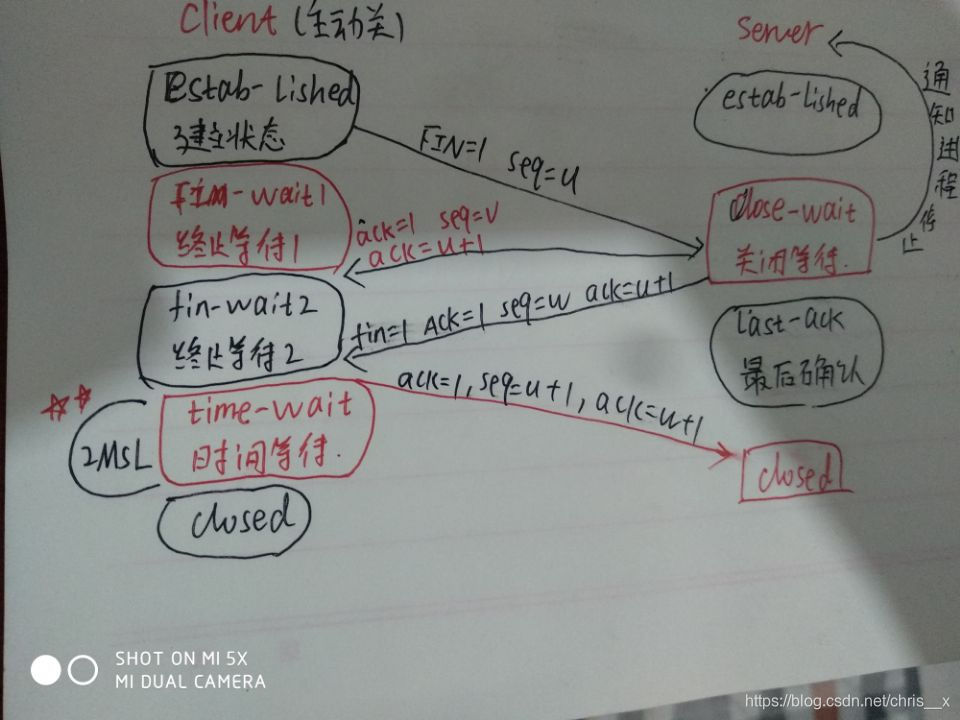 Client (主动关)
Server
estab-lished
建立状态
estab-lished
通知进程停止
FIN=1 seq=u
Fin-wait1
终止等待1
ack=1 seq=v
ack=u+1
close-wait
关闭等待.
fin-wait2
终止等待2
fin=1 ACK=1 seq=w ack=u+1
last-ack
最后确认
ack=1, seq=u+1, ack=u+1
time-wait
时间等待.
2MSL
closed
closed
SHOT ON MI 5X
MI DUAL CAMERA
https://blog.csdn.net/chris__x